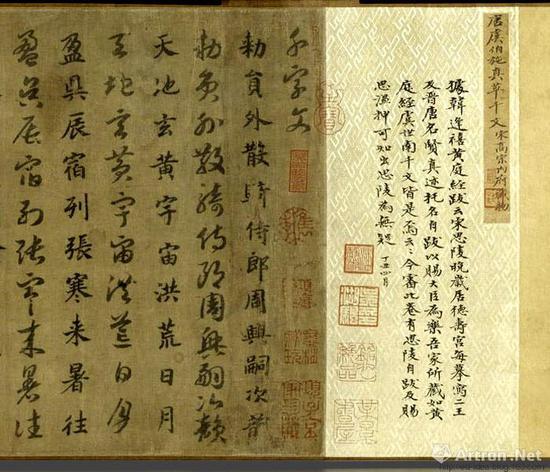 唐虞伯施真草千文 宋高宗内府物
據韓逢禧黃庭經跋云宋思陵晚歲居德壽宮每摹寫二王
及晉唐名賢真迹托名自跋以賜大臣為樂吾家所藏如黃
庭經虞世南千文皆是焉云云今審此卷有思陵自跋及賜
思溫押可知出思陵為無疑 丁丑四月
千字文
勅員外散騎侍郎周興嗣次韻
勅員外散騎侍郎周興嗣次韻
天地玄黃宇宙洪荒日月
天地玄黃宇宙洪荒日月
盈昃辰宿列張寒来暑往
盈昃辰宿列張寒来暑往
Artron.Net